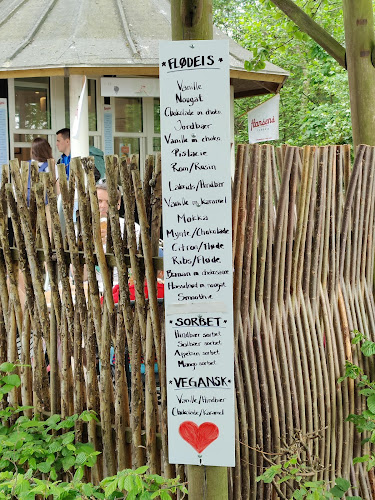 *FLØDEIS*
Vanille
Nougat
Chokolade m choko.
Jordbær
Vanille m choko.
Pistacie
Rom/Rosin
Lakrids/Hindbær
Vanille m karamel
Mokka
Mynte/Chokolade
Citron/Fløde
Ribs/Fløde
Banan m chokolade
Hasselnød m nougat
Smoothie
*SORBET*
Hindbær sorbet
Solbær sorbet
Appelsin sorbet
Mango sorbet
*VEGANSK*
Vanille/Hindbær
Chokolade/Karamel
Hansens